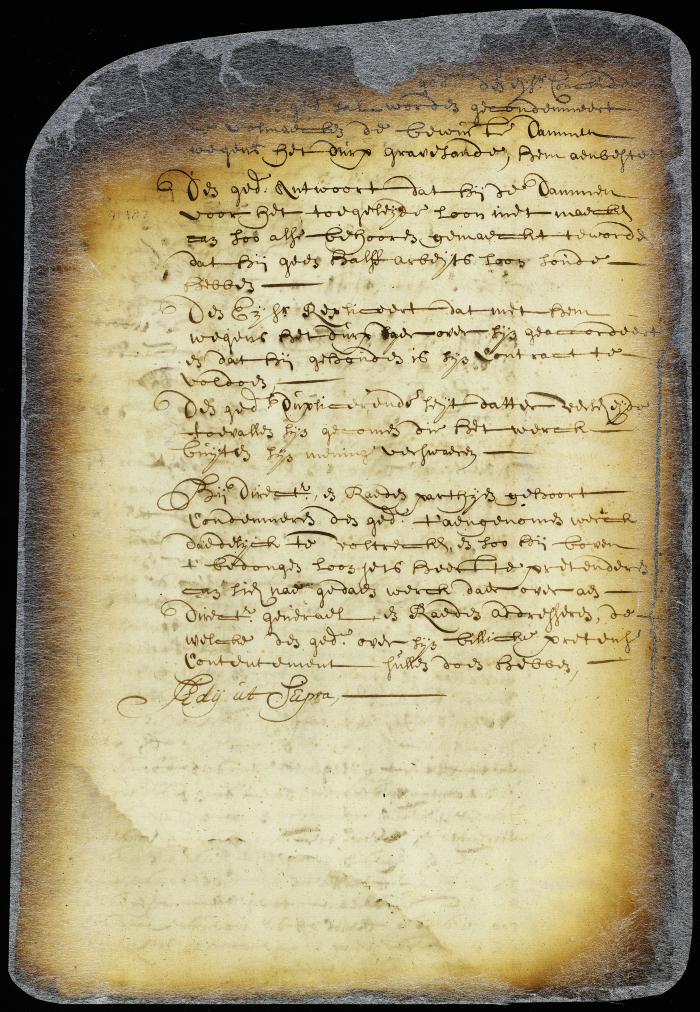 den eysr
ged. sal worden gecondemneert
te volmaecken de bewuste Dammen
wegens het dorp gravesande, hem aenbesteet
Den ged. Antwoort dat hij de Dammen
voor het toegeleyde loon niet maecken
can soo alse behooren gemaeckt te worde
dat hij geen halff arbeyts loon soude
hebben
Den Eysr Repliceert dat met hem
wegens het dorp daer over sijn geaccordeert
en dat hij gehouden is sijn Contract te
voldoen,
Den ged. Duplicerende seyt datter verscheyde
toevallen sijn gecomen die het werck
buyten sijn mening verswaeren
Bij Directr., en Raeden parthijen gehoort
Condemneren den ged. t'aengenomen werck
daedelijck te voltrecken, en soo hij boven
t' bedongen loon jets heeft te pretenderen
can sich nae gedaen werck daer over aen
Directr. generael, en Raeden addresseren, de
welcke den ged. over sijn billicke pretensi
Contentement sullen doen hebben,
Adij ut Supra,